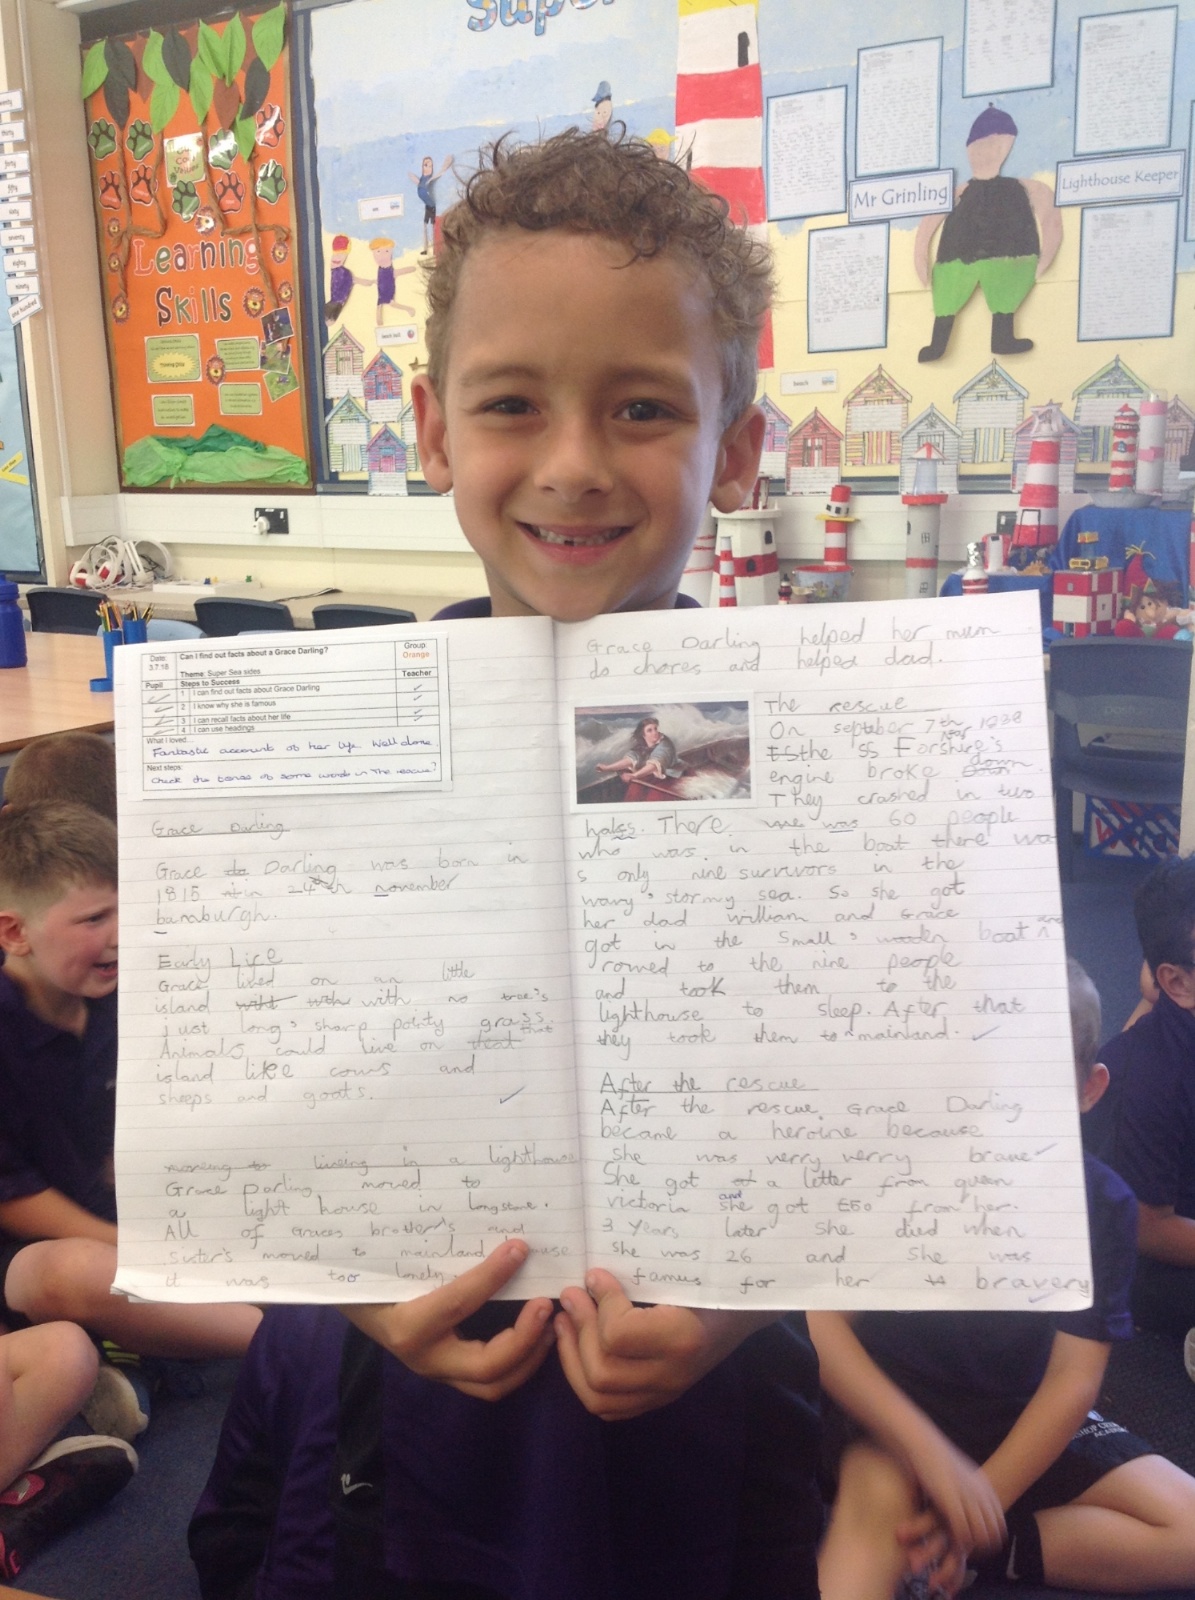 Super
Learning
Skills
Mr Grinling
Lighthouse Keeper
beach
Date:
3.7.18
Can I find out facts about a Grace Darling?
Theme: Super Sea sides
Group:
Orange
Pupil
Steps to Success
Teacher
1 I can find out facts about Grace Darling
2 I know why she is famous
3 I can recall facts about her life
4 I can use headings
What I loved...
Fantastic account of her life. Well done.
Next steps:
Check the tense of some words in 'The rescue'?
Grace Darling
Grace Darling was born in
1815 in 24th november
bamburgh.
Early Life
Grace lived on an little
island with no tree's
just long, sharp pointy grass.
Animals could live on that
island like cows and
sheeps and goats.
moving to liveing in a lighthouse
Grace Darling moved to
a light house in longstone.
All of Graces brother's and
sister's moved to mainland
it was too lonely.
Grace Darling helped her mum
do chores and helped dad.
The rescue
On september 7th 1838
the SS Forshire's
engine broke down.
They crashed in two
There was 60 people
who was in the boat there wa
s only nine survivors in the
wavy, stormy sea. So she got
her dad william and Grace
got in the small, wooden boat and
rowed to the nine people
and took them to the
lighthouse to sleep. After that
they took them to mainland.
After the rescue
After the rescue Grace Darling
became a heroine because
she was verry verry brave
She got a letter from queen
victoria and she got £50 from her.
3 Years later she died when
she was 26 and she was
famus for her bravery